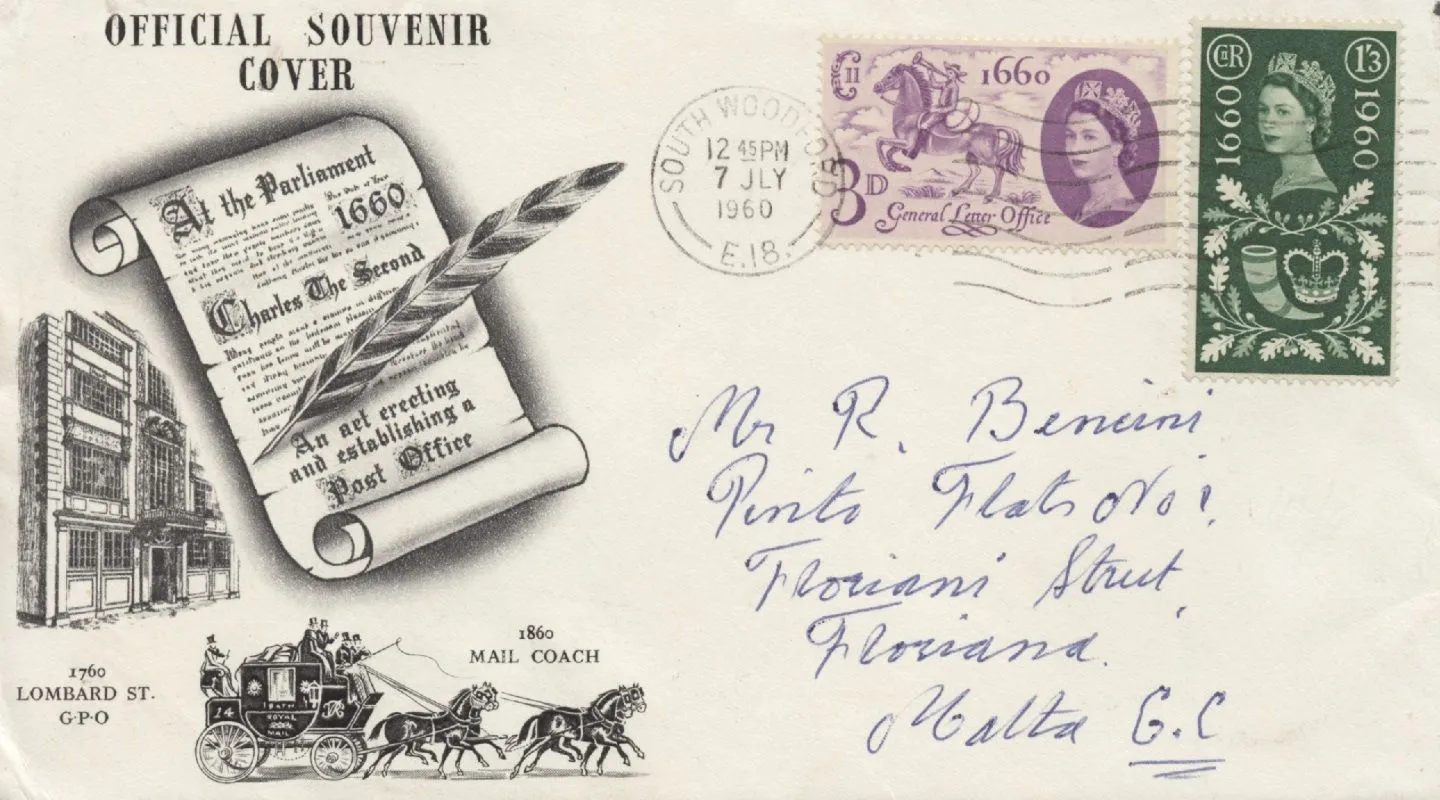 OFFICIAL SOUVENIR
COVER
At the Parliament
1660
Charles The Second
An art erecting
and establishing a
Post Office
1760
LOMBARD ST.
G·P·O
1860
MAIL COACH
14
BATH
ROYAL
MAIL
SOUTH WOODFORD
12 45PM
7 JLY
1960
E.18.
C II R
1660
3D
General Letter Office
CIIR
1'3
1660
1960
Mr R. Bencini
Pinto Flats No 1,
Floriani Street,
Floriana.
Malta G.C